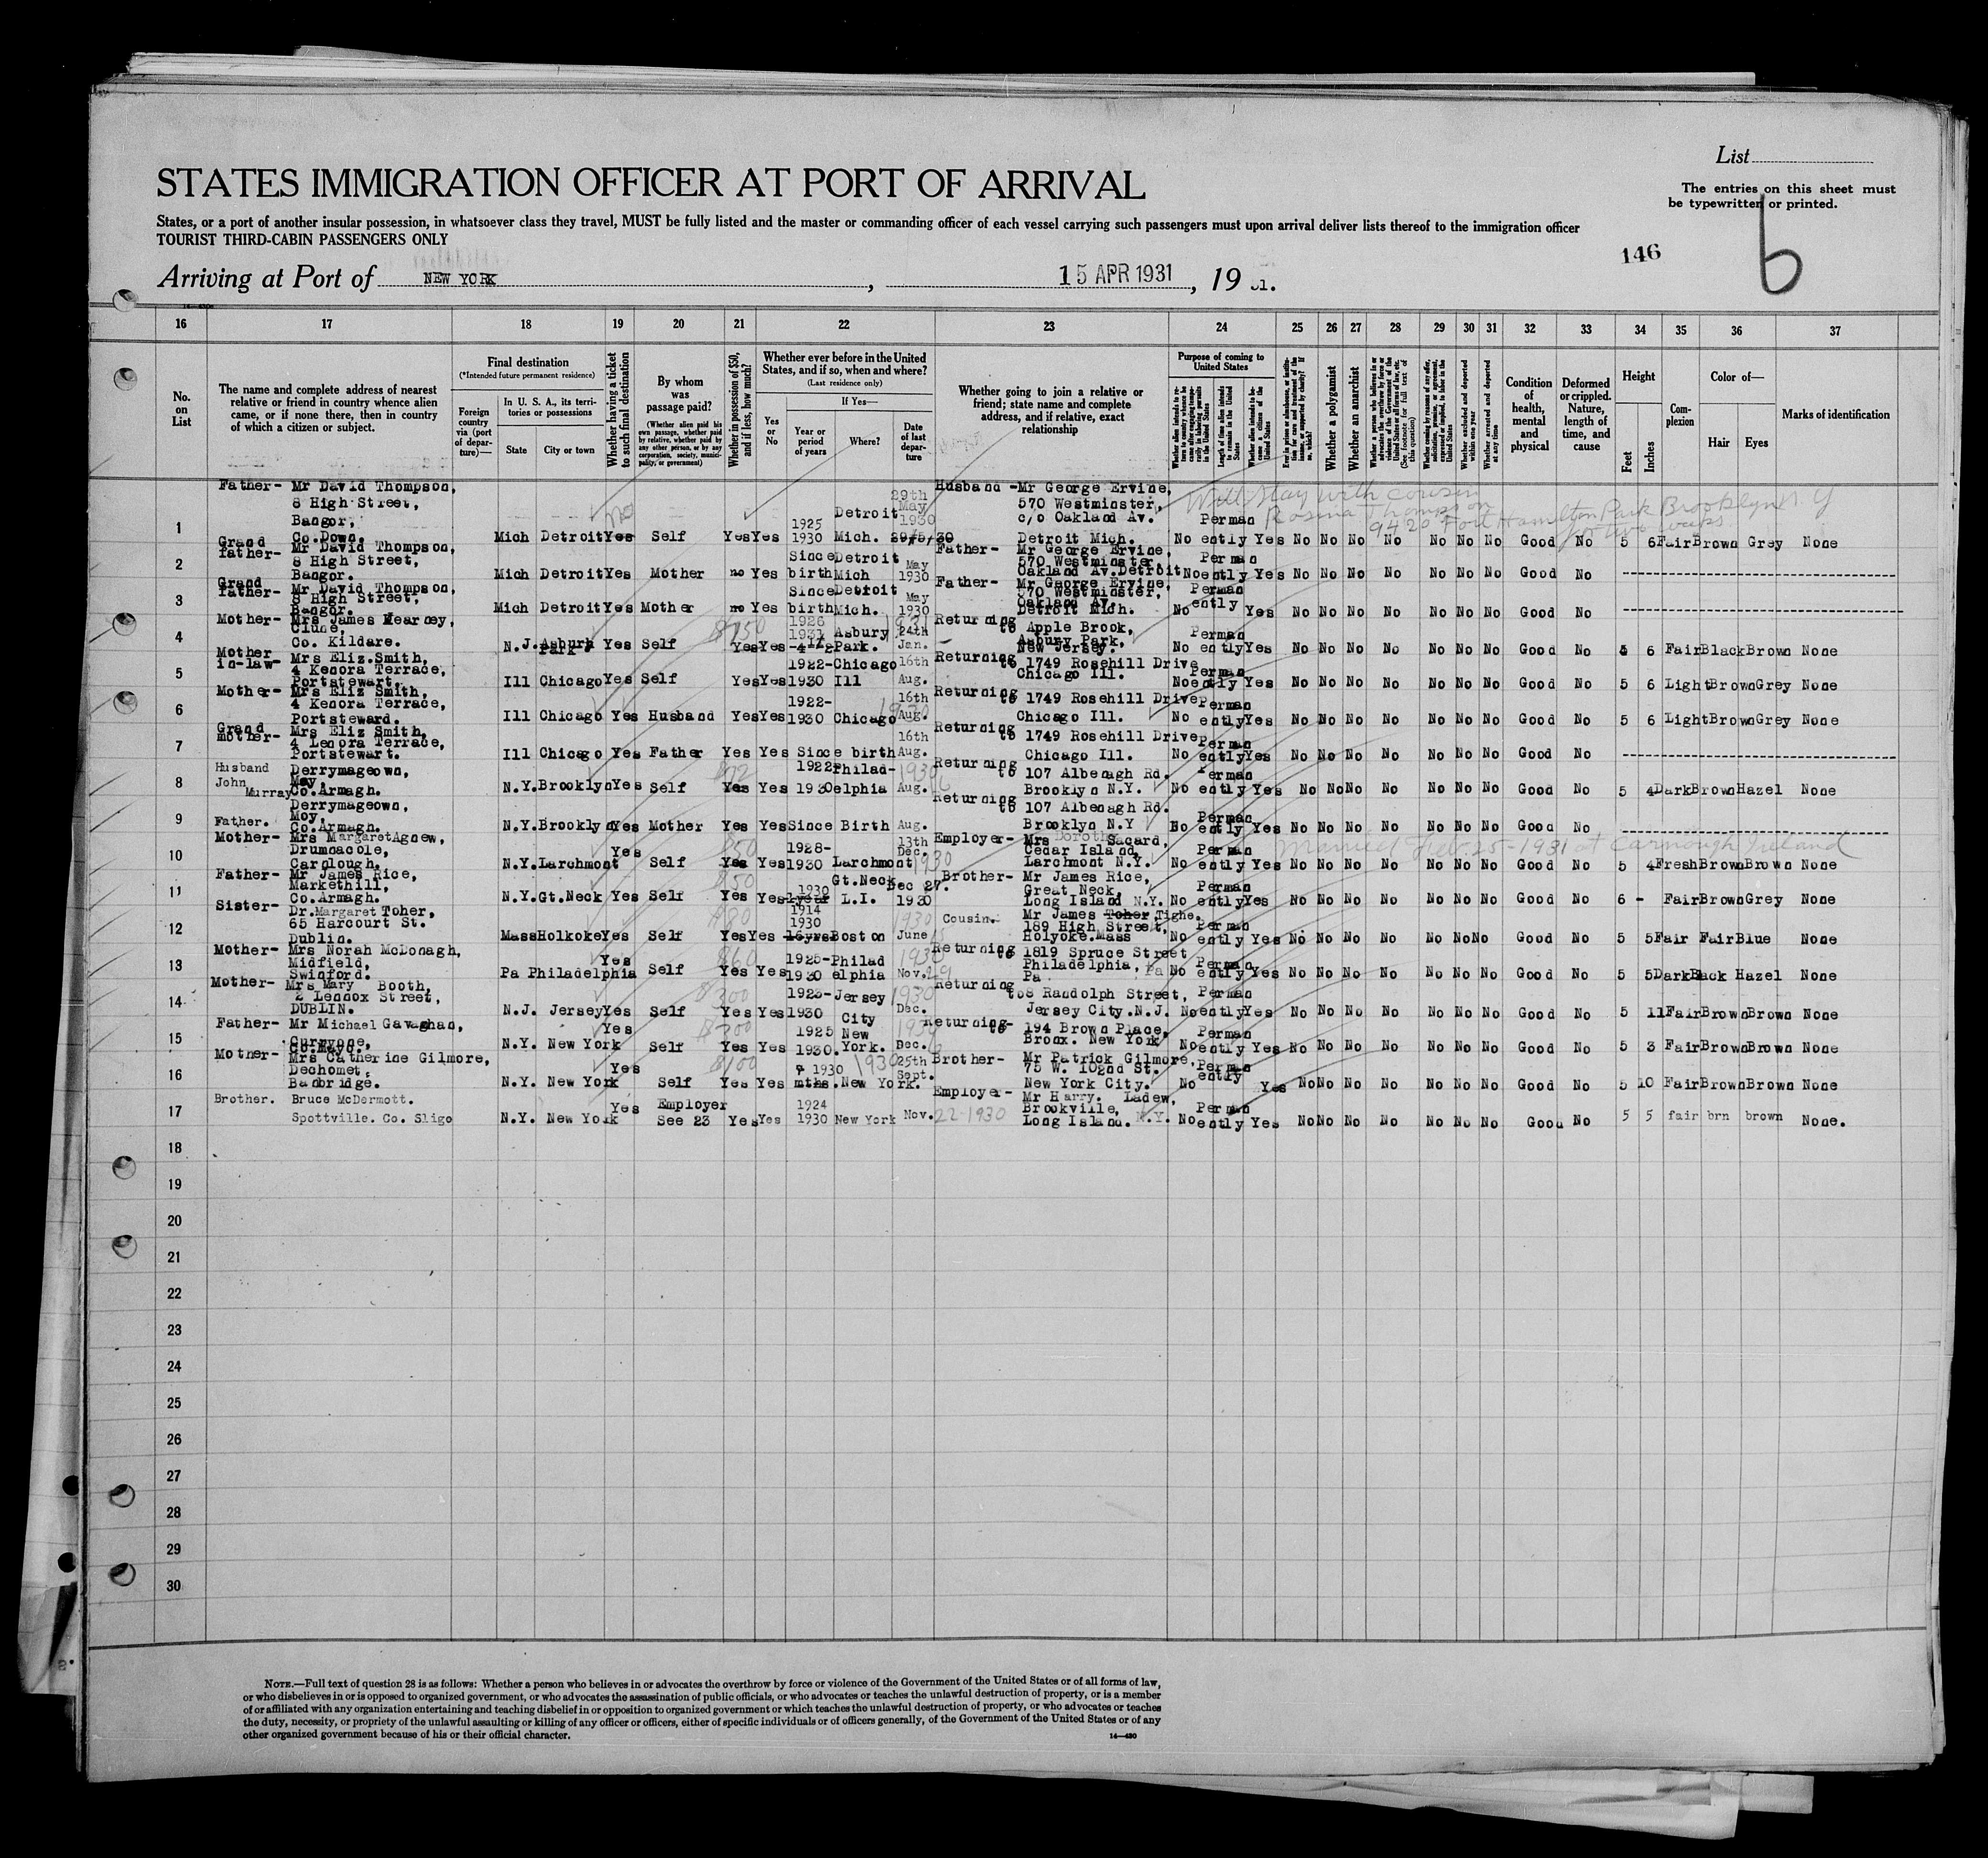 List
The entries on this sheet must
be typewritten or printed.
STATES IMMIGRATION OFFICER AT PORT OF ARRIVAL
States, or a port of another insular possession, in whatsoever class they travel, MUST be fully listed and the master or commanding officer of each vessel carrying such passengers must upon arrival deliver lists thereof to the immigration officer
TOURIST THIRD-CABIN PASSENGERS ONLY
146
6
Arriving at Port of NEW YORK, 15 APR 1931, 19 31.
16 17 18 19 20 21 22 23 24 25 26 27 28 29 30 31 32 33 34 35 36 37
No. on List
The name and complete address of nearest
relative or friend in country whence alien
came, or if none there, then in country
of which a citizen or subject.
Final destination
(*Intended future permanent residence)
Foreign country via (port of departure)—
In U. S. A., its territories or possessions
State City or town
Whether having a ticket to such final destination
By whom was passage paid?
(Whether alien paid his own passage, whether paid by relative, whether paid by any other person, or by any corporation, society, municipality, or government)
Whether in possession of $50, and if less, how much?
Whether ever before in the United States, and if so, when and where?
(Last residence only)
Yes or No
If Yes—
Year or period of years
Where?
Date of last departure
Whether going to join a relative or
friend; state name and complete
address, and if relative, exact
relationship
Purpose of coming to United States
Length of time alien intends to remain in the United States
Whether alien intends to become a citizen of the United States
Whether a polygamist
Whether an anarchist
Whether excluded and deported within one year
Whether arrested and deported at any time
Condition of health, mental and physical
Deformed or crippled. Nature, length of time, and cause
Height
Feet Inches
Complexion
Color of—
Hair Eyes
Marks of identification
1 Father- Mr David Thompson, 8 High Street, Bangor, Co. Down. Mich Detroit Yes No Self Yes Yes 1925 1930 Detroit Mich. 29th May 1930 29/5/30 Husband - Mr George Ervine, 570 Westminster, c/o Oakland Av. Detroit Mich. No Permanently Yes No No No No No No No Good No 5 6 Fair Brown Grey None
Will stay with cousin
Rosina Thompson
9420 Fort Hamilton Park Brooklyn
for two weeks
2 Grand father- Mr David Thompson, 8 High Street, Bangor. Mich Detroit Yes Mother no Yes Since birth Detroit Mich May 1930 Father- Mr George Ervine, 570 Westminster, Oakland Av. Detroit No Permanently Yes No No No No No No No Good No
3 Grand father- Mr David Thompson, 8 High Street, Bangor. Mich Detroit Yes Mother no Yes Since birth Detroit Mich. May 1930 Father- Mr George Ervine, 570 Westminster, Oakland Av. Detroit Mich. No Permanently Yes No No No No No No No Good No
4 Mother- Mrs James Kearney, Clune, Co. Kildare. N.J. Asbury Park Yes Self $150 Yes Yes 1926 1931 Asbury Park. 24th Jan. 1931 Returning to Apple Brook, Asbury Park, New Jersey. No Permanently Yes No No No No No No No Good No 6 Fair Black Brown None
5 Mother in-law- Mrs Eliz. Smith, 4 Kenora Terrace, Portstewart. Ill Chicago Yes Self Yes Yes 1922-1930 Chicago Ill 16th Aug. Returning to 1749 Rosehill Drive Chicago Ill. No Permanently Yes No No No No No No No Good No 5 6 Light Brown Grey None
6 Mother- Mrs Eliz Smith, 4 Kenora Terrace, Portsteward. Ill Chicago Yes Husband Yes Yes 1922-1930 Chicago 16th Aug. 1930 Returning to 1749 Rosehill Drive Chicago Ill. No Permanently Yes No No No No No No No Good No 5 6 Light Brown Grey None
7 Grand mother- Mrs Eliz Smith, 4 Lenora Terrace, Portstewart. Ill Chicago Yes Father Yes Yes Since birth 16th Aug. Returning to 1749 Rosehill Drive Chicago Ill. No Permanently Yes No No No No No No No Good No
8 Husband John Murray Derrymageown, Moy, Co. Armagh. N.Y. Brooklyn Yes Self $72 Yes Yes 1922- 1930 Philadelphia Aug. 1930 Returning to 107 Albenagh Rd. Brooklyn N.Y. No Permanently Yes No No No No No No No Good No 5 4 Dark Brown Hazel None
9 Father. Derrymageown, Moy, Co. Armagh. N.Y. Brooklyn Yes Mother Yes Yes Since Birth Aug. Returning to 107 Albenagh Rd. Brooklyn N.Y No Permanently Yes No No No No No No No Good No
10 Mother- Mrs Margaret Agnew, Drumnacole, Carnlough, N.Y. Larchmont Yes Self $50 Yes Yes 1928-1930 Larchmont 13th Dec. 1930 Employer- Mrs Dorothy Sacard, Cedar Island, Larchmont N.Y. No Permanently Yes No No No No No No No Good No 5 4 Fresh Brown Brown None
Married Feb. 25-1931 at Carnough Ireland
11 Father- Mr James Rice, Markethill, Co. Armagh. N.Y. Gt. Neck Yes Self $50 Yes Yes 1930 1 year Gt. Neck L.I. Dec 27. 1930 Brother- Mr James Rice, Great Neck, Long Island N.Y. No Permanently Yes No No No No No No No Good No 6 - Fair Brown Grey None
12 Sister- Dr. Margaret Toher, 65 Harcourt St. Dublin. Mass Holkoke Yes Self $80 Yes Yes 1914 1930 16 yrs Boston June 1930 Cousin. Mr James Toher Tighe. 189 High Street, Holyoke. Mass No Permanently Yes No No No No No No No Good No 5 5 Fair Fair Blue None
13 Mother- Mrs Norah McDonagh, Midfield, Swinford. Pa Philadelphia Yes Self $60 Yes Yes 1925-1930 Philadelphia Nov. 1930 Returning to 1819 Spruce Street Philadelphia, Pa Pa. No Permanently Yes No No No No No No No Good No 5 5 Dark Back Hazel None
14 Mother- Mrs Mary Booth, 2 Lennox Street, DUBLIN. N.J. Jersey Yes Self $300 Yes Yes 1923-1930 Jersey City Dec. 1930 Returning to 8 Randolph Street, Jersey City. N.J. No Permanently Yes No No No No No No No Good No 5 11 Fair Brown Brown None
15 Father- Mr Michael Gavaghan, Curryone, Co. Mayo. N.Y. New York Yes Self $200 Yes Yes 1925 1930. New York. Dec. Returning- to 194 Brown Place, Bronx. New York No Permanently Yes No No No No No No No Good No 5 3 Fair Brown Brown None
16 Mother- Mrs Catherine Gilmore, Dechomet, Banbridge. N.Y. New York Yes Self $100 Yes Yes 1930 mths. New York. 25th Sept. 1930 Brother- Mr Patrick Gilmore, 75 W. 102nd St. New York City. No Permanently Yes No No No No No No No Good No 5 10 Fair Brown Brown None
17 Brother. Bruce McDermott. Spottville. Co. Sligo N.Y. New York Yes Employer See 23 Yes Yes 1924 1930 New York Nov. 22-1930 Employer- Mr Harry. Ladew, Brookville, Long Island. N.Y. No Permanently Yes No No No No No No No Good No 5 5 fair brn brown None.
18
19
20
21
22
23
24
25
26
27
28
29
30
NOTE.—Full text of question 28 is as follows: Whether a person who believes in or advocates the overthrow by force or violence of the Government of the United States or of all forms of law,
or who disbelieves in or is opposed to organized government, or who advocates the assassination of public officials, or who advocates or teaches the unlawful destruction of property, or is a member
of or affiliated with any organization entertaining and teaching disbelief in or opposition to organized government or which teaches the unlawful destruction of property, or who advocates or teaches
the duty, necessity, or propriety of the unlawful assaulting or killing of any officer or officers, either of specific individuals or of officers generally, of the Government of the United States or of any
other organized government because of his or their official character.
14—430